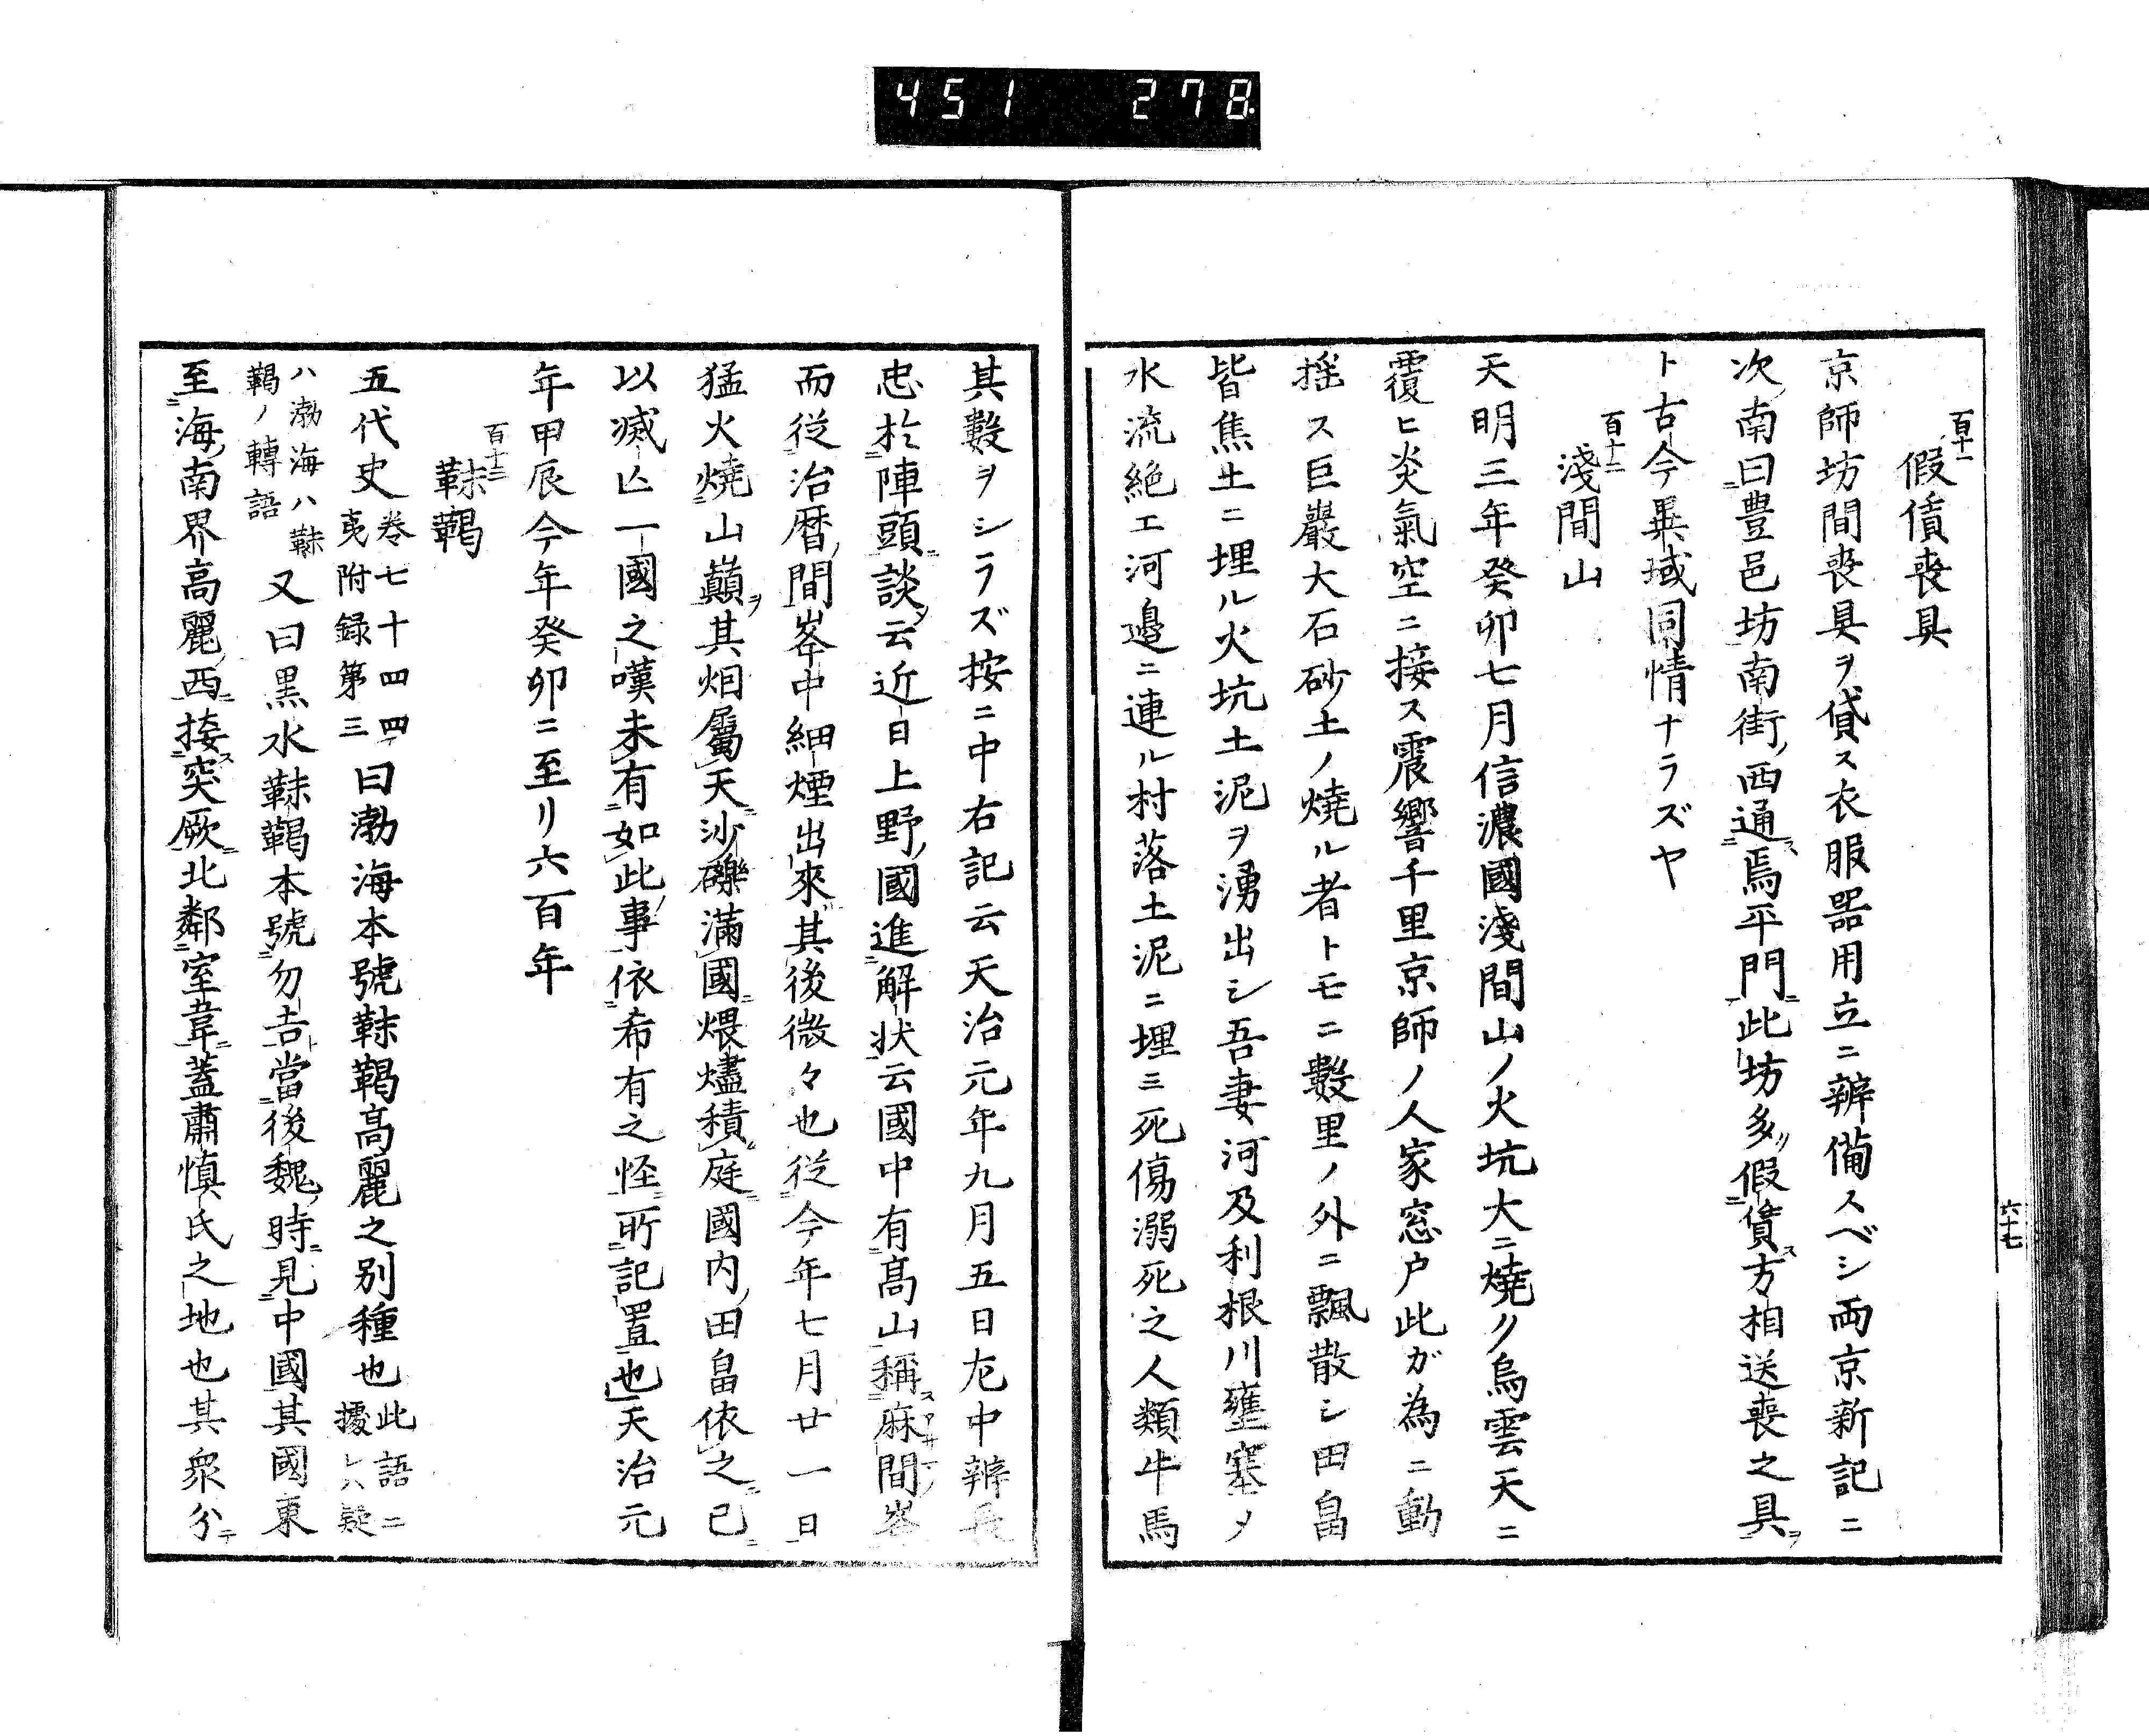 451 278
六十七
百十一
假賃喪具
京師坊間喪具ヲ貸ス衣服器用立ニ辨備スベシ両京新記ニ
次南曰豊邑坊南街ノ西通ス焉平門ニ此坊多リ假賃ス方相送喪之具ヲ
ト古今異域同情ナラズヤ
百十二
淺間山
天明三年癸卯七月信濃國淺間山ノ火坑大ニ燒ケ烏雲天ニ
覆ヒ炎氣空ニ接ス震響千里京師ノ人家窓戸此ガ為ニ動
揺ス巨巖大石砂土ノ燒ル者トモニ數里ノ外ニ飄散シ田畠
皆焦土ニ埋ル火坑土泥ヲ湧出シ吾妻河及利根川壅塞シ
水流絶エ河邉ニ連ル村落土泥ニ埋ミ死傷溺死之人類牛馬
其數ヲシラズ按ニ中右記云天治元年九月五日左中辨長
忠於陣頭談云近日上野國進解状云國中有髙山稱麻間峯
而従治暦間峯中細煙出來其後微々也従今年七月廿一日
猛火燒山巓其烟屬天沙礫滿國煨燼積庭國内田畠依之已
以滅亡一國之嘆未有如此事依希有之怪所記置也天治元
年甲辰今年癸卯ニ至リ六百年
百十三
靺鞨
五代史卷七十四四夷附録第三曰渤海本號靺鞨髙麗之别種也此語ニ據レハ疑
ハ渤海ハ靺鞨ノ轉語又曰黒水靺鞨本號勿吉當後魏時見中國其國東
至海南界高麗西接突厥北鄰室韋蓋肅慎氏之地也其衆分